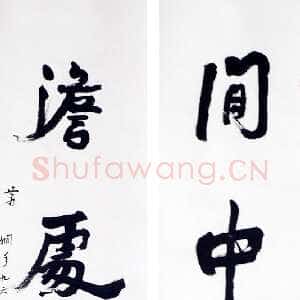 間中
澹處
Shufawang.CN